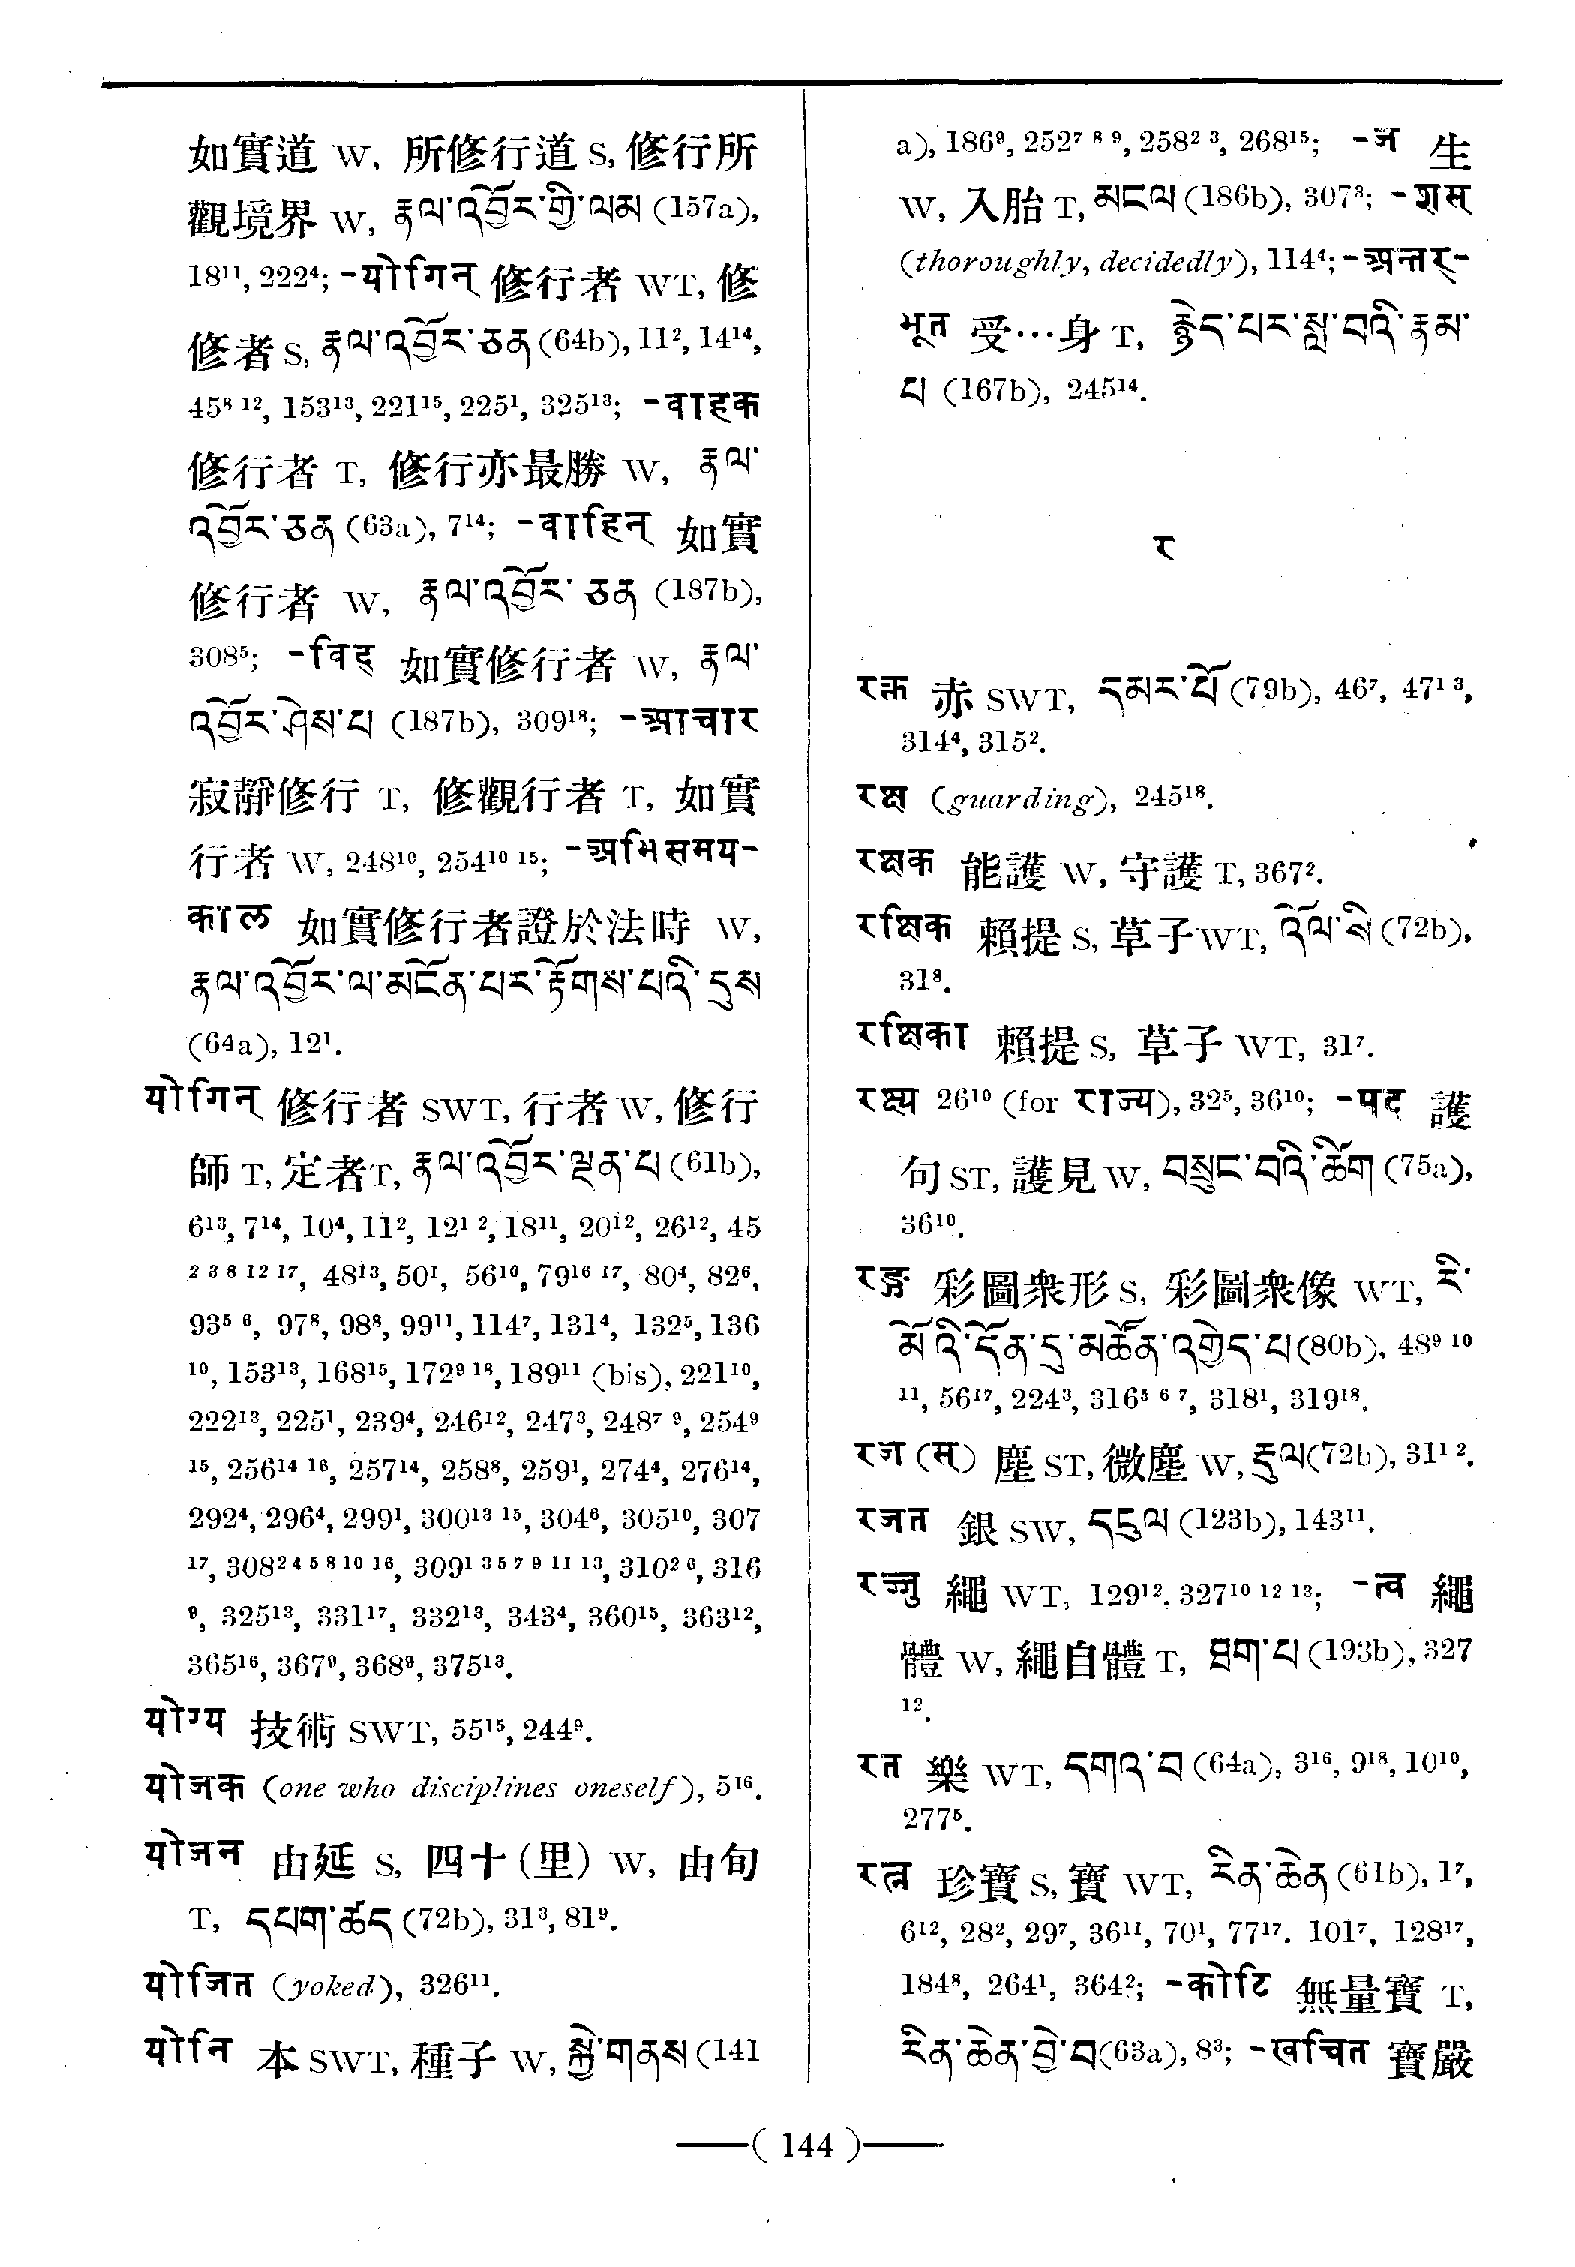 如實道 W, 所修行道 S, 修行所
觀境界 W, རྣལ་འབྱོར་གྱི་ལམ (157a),
18¹¹, 222⁴; -योगिन् 修行者 WT, 修
修者 S, རྣལ་འབྱོར་ཅན (64b), 11², 14¹⁴,
45⁸ ¹², 153¹³, 221¹⁵, 225¹, 325¹³; -वाहक
修行者 T, 修行亦最勝 W, རྣལ་
འབྱོར་ཅན (63a), 7¹⁴; -वाहिन् 如實
修行者 W, རྣལ་འབྱོར་ ཅན (187b),
308⁵; -विद् 如實修行者 W, རྣལ་
འབྱོར་ཤེས་པ (187b), 309¹⁸; -आचार
寂靜修行 T, 修觀行者 T, 如實
行者 W, 248¹⁰, 254¹⁰ ¹⁵; -अभिसमय-
काल 如實修行者證於法時 W,
རྣལ་འབྱོར་ལ་མངོན་པར་རྟོགས་པའི་དུས
(64a), 12¹.
योगिन् 修行者 SWT, 行者 W, 修行
師 T, 定者 T, རྣལ་འབྱོར་ལྡན་པ (61b),
6¹³, 7¹⁴, 10⁴, 11², 12¹ ², 18¹¹, 20¹², 26¹², 45
² ³ ⁸ ¹² ¹⁷, 48¹³, 50¹, 56¹⁰, 79¹⁶ ¹⁷, 80⁴, 82⁶,
93⁵ ⁶, 97⁸, 98⁸, 99¹¹, 114⁷, 131⁴, 132⁵, 136
¹⁰, 153¹³, 168¹⁵, 172⁹ ¹⁸, 189¹¹ (bis), 221¹⁰,
222¹³, 225¹, 239⁴, 246¹², 247³, 248⁷ ⁹, 254⁹
¹⁵, 256¹⁴ ¹⁶, 257¹⁴, 258⁸, 259¹, 274⁴, 276¹⁴,
292⁴, 296⁴, 299¹, 300¹³ ¹⁵, 304⁶, 305¹⁰, 307
¹⁷, 308² ⁴ ⁵ ⁸ ¹⁰ ¹⁶, 309¹ ³ ⁵ ⁷ ⁹ ¹¹ ¹³, 310² ⁶, 316
⁹, 325¹³, 331¹⁷, 332¹³, 343⁴, 360¹⁵, 363¹²,
365¹⁶, 367⁹, 368⁹, 375¹³.
योग्य 技術 SWT, 55¹⁵, 244⁹.
योजक (one who disciplines oneself), 5¹⁶.
योजन 由延 S, 四十(里) W, 由旬
T, དཔག་ཚད (72b), 31³, 81⁹.
योजित (yoked), 326¹¹.
योनि 本 SWT, 種子 W, སྐྱེ་གནས (141
a), 186⁹, 252⁷ ⁸ ⁹, 258² ³, 268¹⁵; -ज 生
W, 入胎 T, མངལ (186b), 307³; -शस्
(thoroughly, decidedly), 114⁴; -अन्तर्-
भूत 受…身 T, རྙེད་པར་སླ་བའི་རྣམ་
པ (167b), 245¹⁴.
र
रक्त 赤 SWT, དམར་པོ (79b), 46⁷, 47¹ ³,
314⁴, 315².
रक्ष (guarding), 245¹⁸.
रक्षक 能護 W, 守護 T, 367².
रक्षिक 賴提 S, 草子 WT, འོལ་སི (72b),
31⁸.
रक्षिका 賴提 S, 草子 WT, 31⁷.
रक्ष्य 26¹⁰ (for राज्य), 32⁵, 36¹⁰; -पद 護
句 ST, 護見 W, བསྲུང་བའི་ཚིག (75a),
36¹⁰.
रङ्ग 彩圖衆形 S, 彩圖衆像 WT, རི་
མོའི་དོན་དུ་མཚོན་འགྱེད་པ (80b), 48⁹ ¹⁰
¹¹, 56¹⁷, 224³, 316⁵ ⁶ ⁷, 318¹, 319¹⁸.
रज (स्) 塵 ST, 微塵 W, རྡུལ (72b), 31¹ ².
रजत 銀 SW, དངུལ (123b), 143¹¹.
रज्जु 繩 WT, 129¹², 327¹⁰ ¹² ¹³; -त्व 繩
體 W, 繩自體 T, ཐག་པ (193b), 327
¹².
रत 樂 WT, དགའ་བ (64a), 3¹⁶, 9¹⁸, 10¹⁰,
277⁵.
रत्न 珍寶 S, 寶 WT, རིན་ཆེན (61b), 1⁷,
6¹², 28², 29⁷, 36¹¹, 70¹, 77¹⁷. 101⁷, 128¹⁷,
184⁸, 264¹, 364²; -कोटि 無量寶 T,
རིན་ཆེན་བྱེ་བ (63a), 8³; -खचित 寶嚴
—( 144 )—